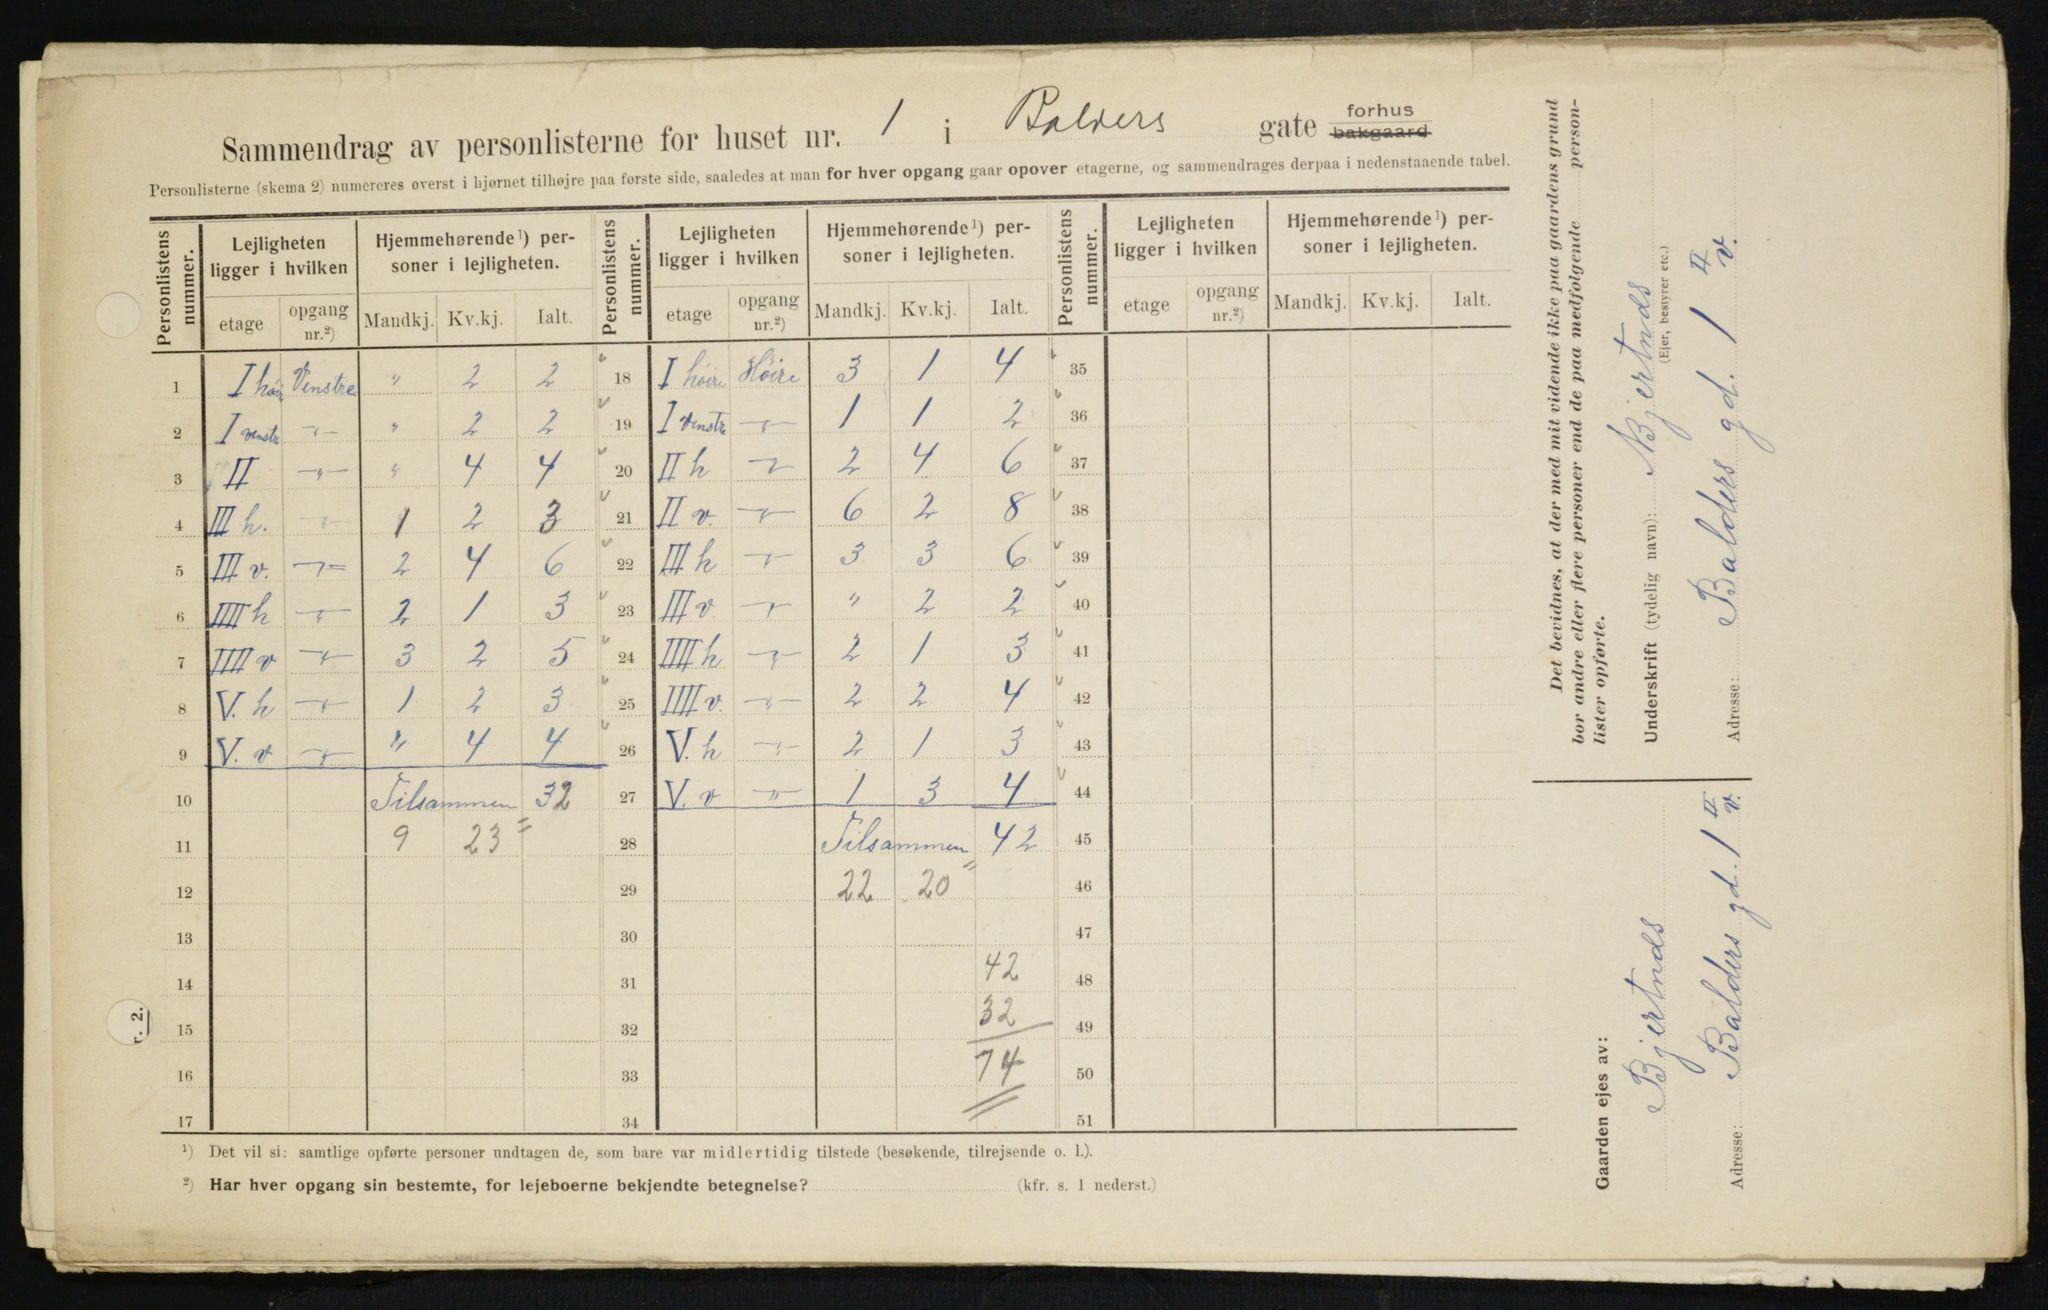 Sammendrag av personlisterne for huset nr. 1 i Balders gate forhus bakgaard
Personlisterne (skema 2) numereres øverst i hjørnet tilhøjre paa første side, saaledes at man for hver opgang gaar opover etagerne, og sammendrages derpaa i nedenstaaende tabel.
Personlistens nummer. Lejligheten ligger i hvilken Hjemmehørende ¹) personer i lejligheten. Personlistens nummer. Lejligheten ligger i hvilken Hjemmehørende ¹) personer i lejligheten. Personlistens nummer. Lejligheten ligger i hvilken Hjemmehørende ¹) personer i lejligheten.
etage opgang nr.²) Mandkj. Kv.kj. Ialt. etage opgang nr.²) Mandkj. Kv.kj. Ialt. etage opgang nr.²) Mandkj. Kv.kj. Ialt.
1 I høire Venstre " 2 2 18 I høire Høire 3 1 4 35
2 I venstre –"– " 2 2 19 I venstre –"– 1 1 2 36
3 II –"– " 4 4 20 II h –"– 2 4 6 37
4 III h. –"– 1 2 3 21 II v. –"– 6 2 8 38
5 III v. –"– 2 4 6 22 III h –"– 3 3 6 39
6 IIII h –"– 2 1 3 23 III v. –"– " 2 2 40
7 IIII v –"– 3 2 5 24 IIII h –"– 2 1 3 41
8 V. h –"– 1 2 3 25 IIII v. –"– 2 2 4 42
9 V. v –"– " 4 4 26 V. h –"– 2 1 3 43
10 Tilsammen 32 27 V. v –"– 1 3 4 44
11 9 23 = 28 Tilsammen 42 45
12 29 22 20 = 46
13 30 47
14 31 42 48
15 32 32 49
16 33 74 50
17 34 51
¹) Det vil si: samtlige opførte personer undtagen de, som bare var midlertidig tilstede (besøkende, tilrejsende o. l.).
²) Har hver opgang sin bestemte, for lejeboerne bekjendte betegnelse? (kfr. s. 1 nederst.)
r. 2.
Det bevidnes, at der med mit vidende ikke paa gaardens grund
bor andre eller flere personer end de paa medfølgende personlister opførte.
Underskrift (tydelig navn): N Bjertnds
(Ejer, bestyrer etc.)
Adresse: Balders gd. 1 II v.
Gaarden ejes av:
Bjertnds
Adresse: Balders gd. 1 II v.